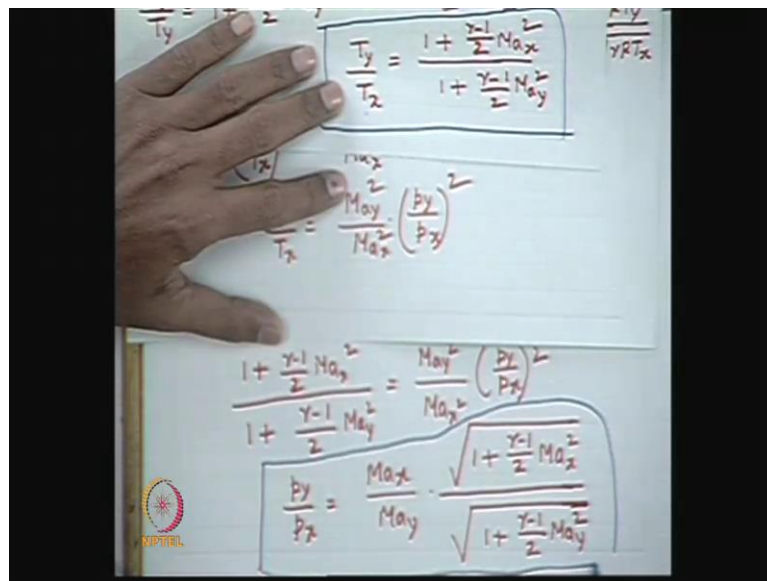 Ty/Tx = (1 + (γ-1)/2 Max²) / (1 + (γ-1)/2 May²)
γRTx
Tx = May²/Max² · (py/px)²
(1 + (γ-1)/2 Max²) / (1 + (γ-1)/2 May²) = May²/Max² (py/px)²
py/px = Max/May · √(1 + (γ-1)/2 Max²) / √(1 + (γ-1)/2 May²)
NPTEL